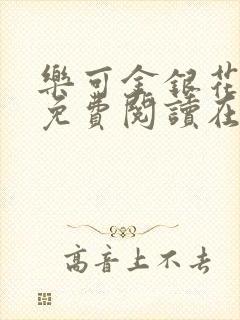 樂可金銀花
免費閱讀在
高音上不去